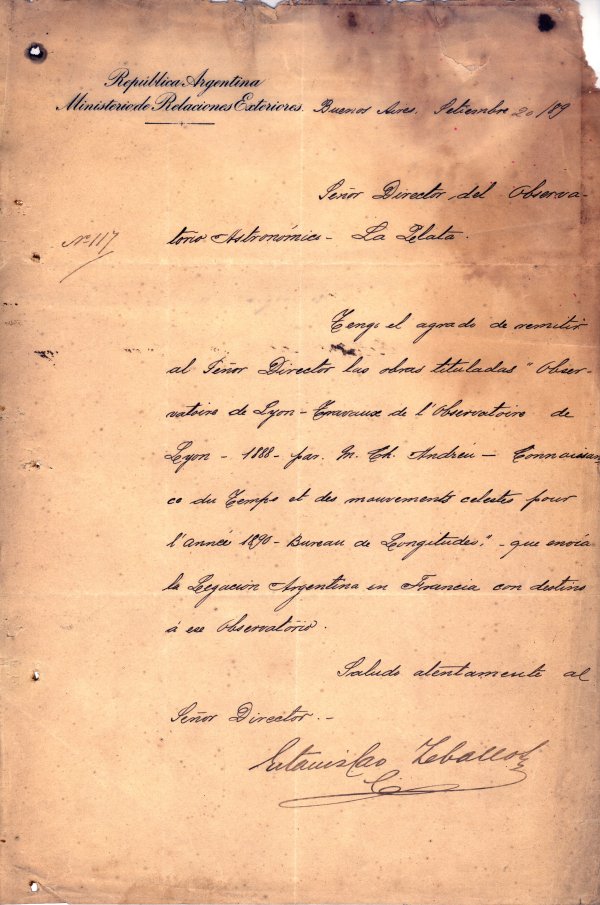 República Argentina
Ministerio de Relaciones Exteriores. Buenos Aires, Setiembre 20/89
Señor Director del Observa-
Nº 117
torio Astronómico - La Plata.
Tengo el agrado de remitir
al Señor Director las obras tituladas "Obser-
vatoire de Lyon - Travaux de l'Observatoire de
Lyon - 1888 - par. M. Ch. André - Connaissan
ce du Temps et des mouvements celestes pour
l'année 1890 - Bureau de Longitudes," - que envía
la Legación Argentina en Francia con destino
á ese Observatorio.
Saludo atentamente al
Señor Director. -
Estanislao Zeballos